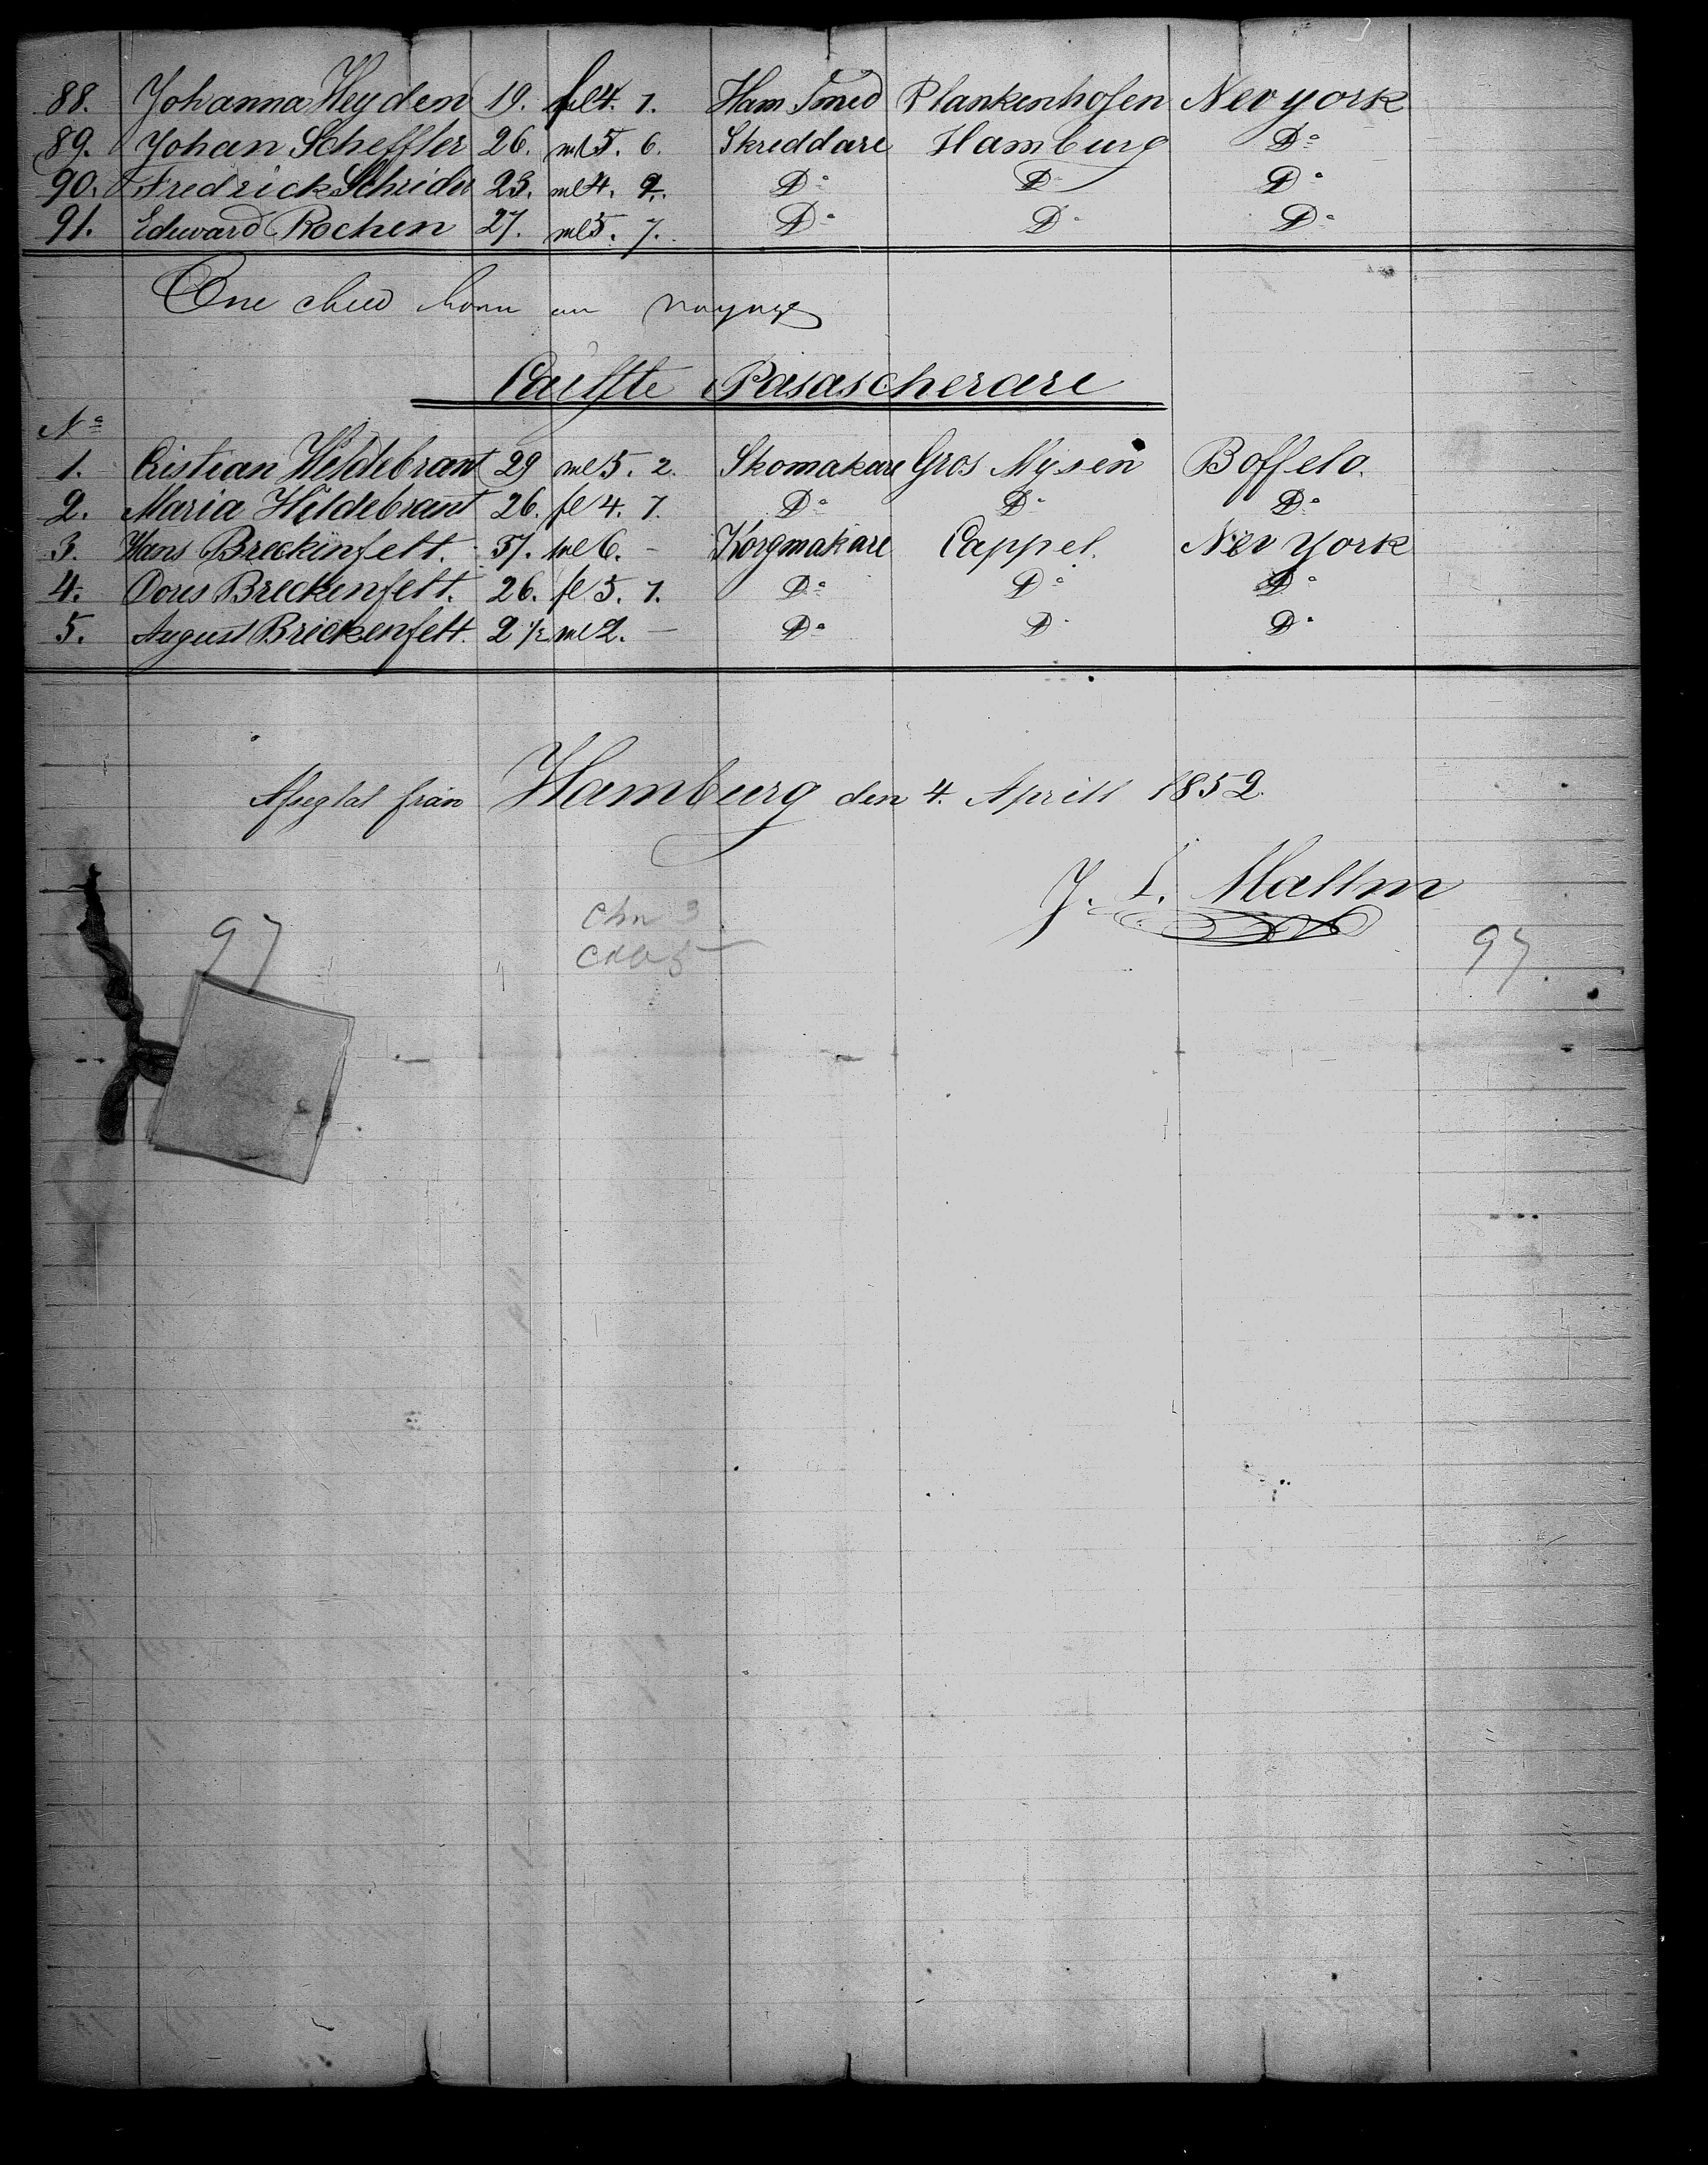 88. Johanna Heyden 19. fel 4. 7. Ham Smed Plankenhofen New york
89. Johan Scheffler 26. ml 5. 6. Skreddare Hamburg Do
90. Fredrick Schrider 23. ml 4. 9. Do Do Do
91. Edward Rochen 27. ml 5. 7. Do Do Do
One child born on voyage
Cajüte Passascherare
No
1. Cristian Hildebrant 29 ml 5. 2. Skomakare Gros Mysen Boffelo.
2. Maria Hildebrant 26. fe 4. 7. Do Do Do
3. Hans Breckenfelt. 37. ml 6. - Korgmakare Cappel. New York
4. Dores Breckenfelt. 26. fe 5. 1. Do Do Do
5. August Brickenfelt. 2 1/2 ml 2. - Do Do Do
Afseglat från Hamburg den 4. Aprill 1852.
J. L. Mallm
97 97